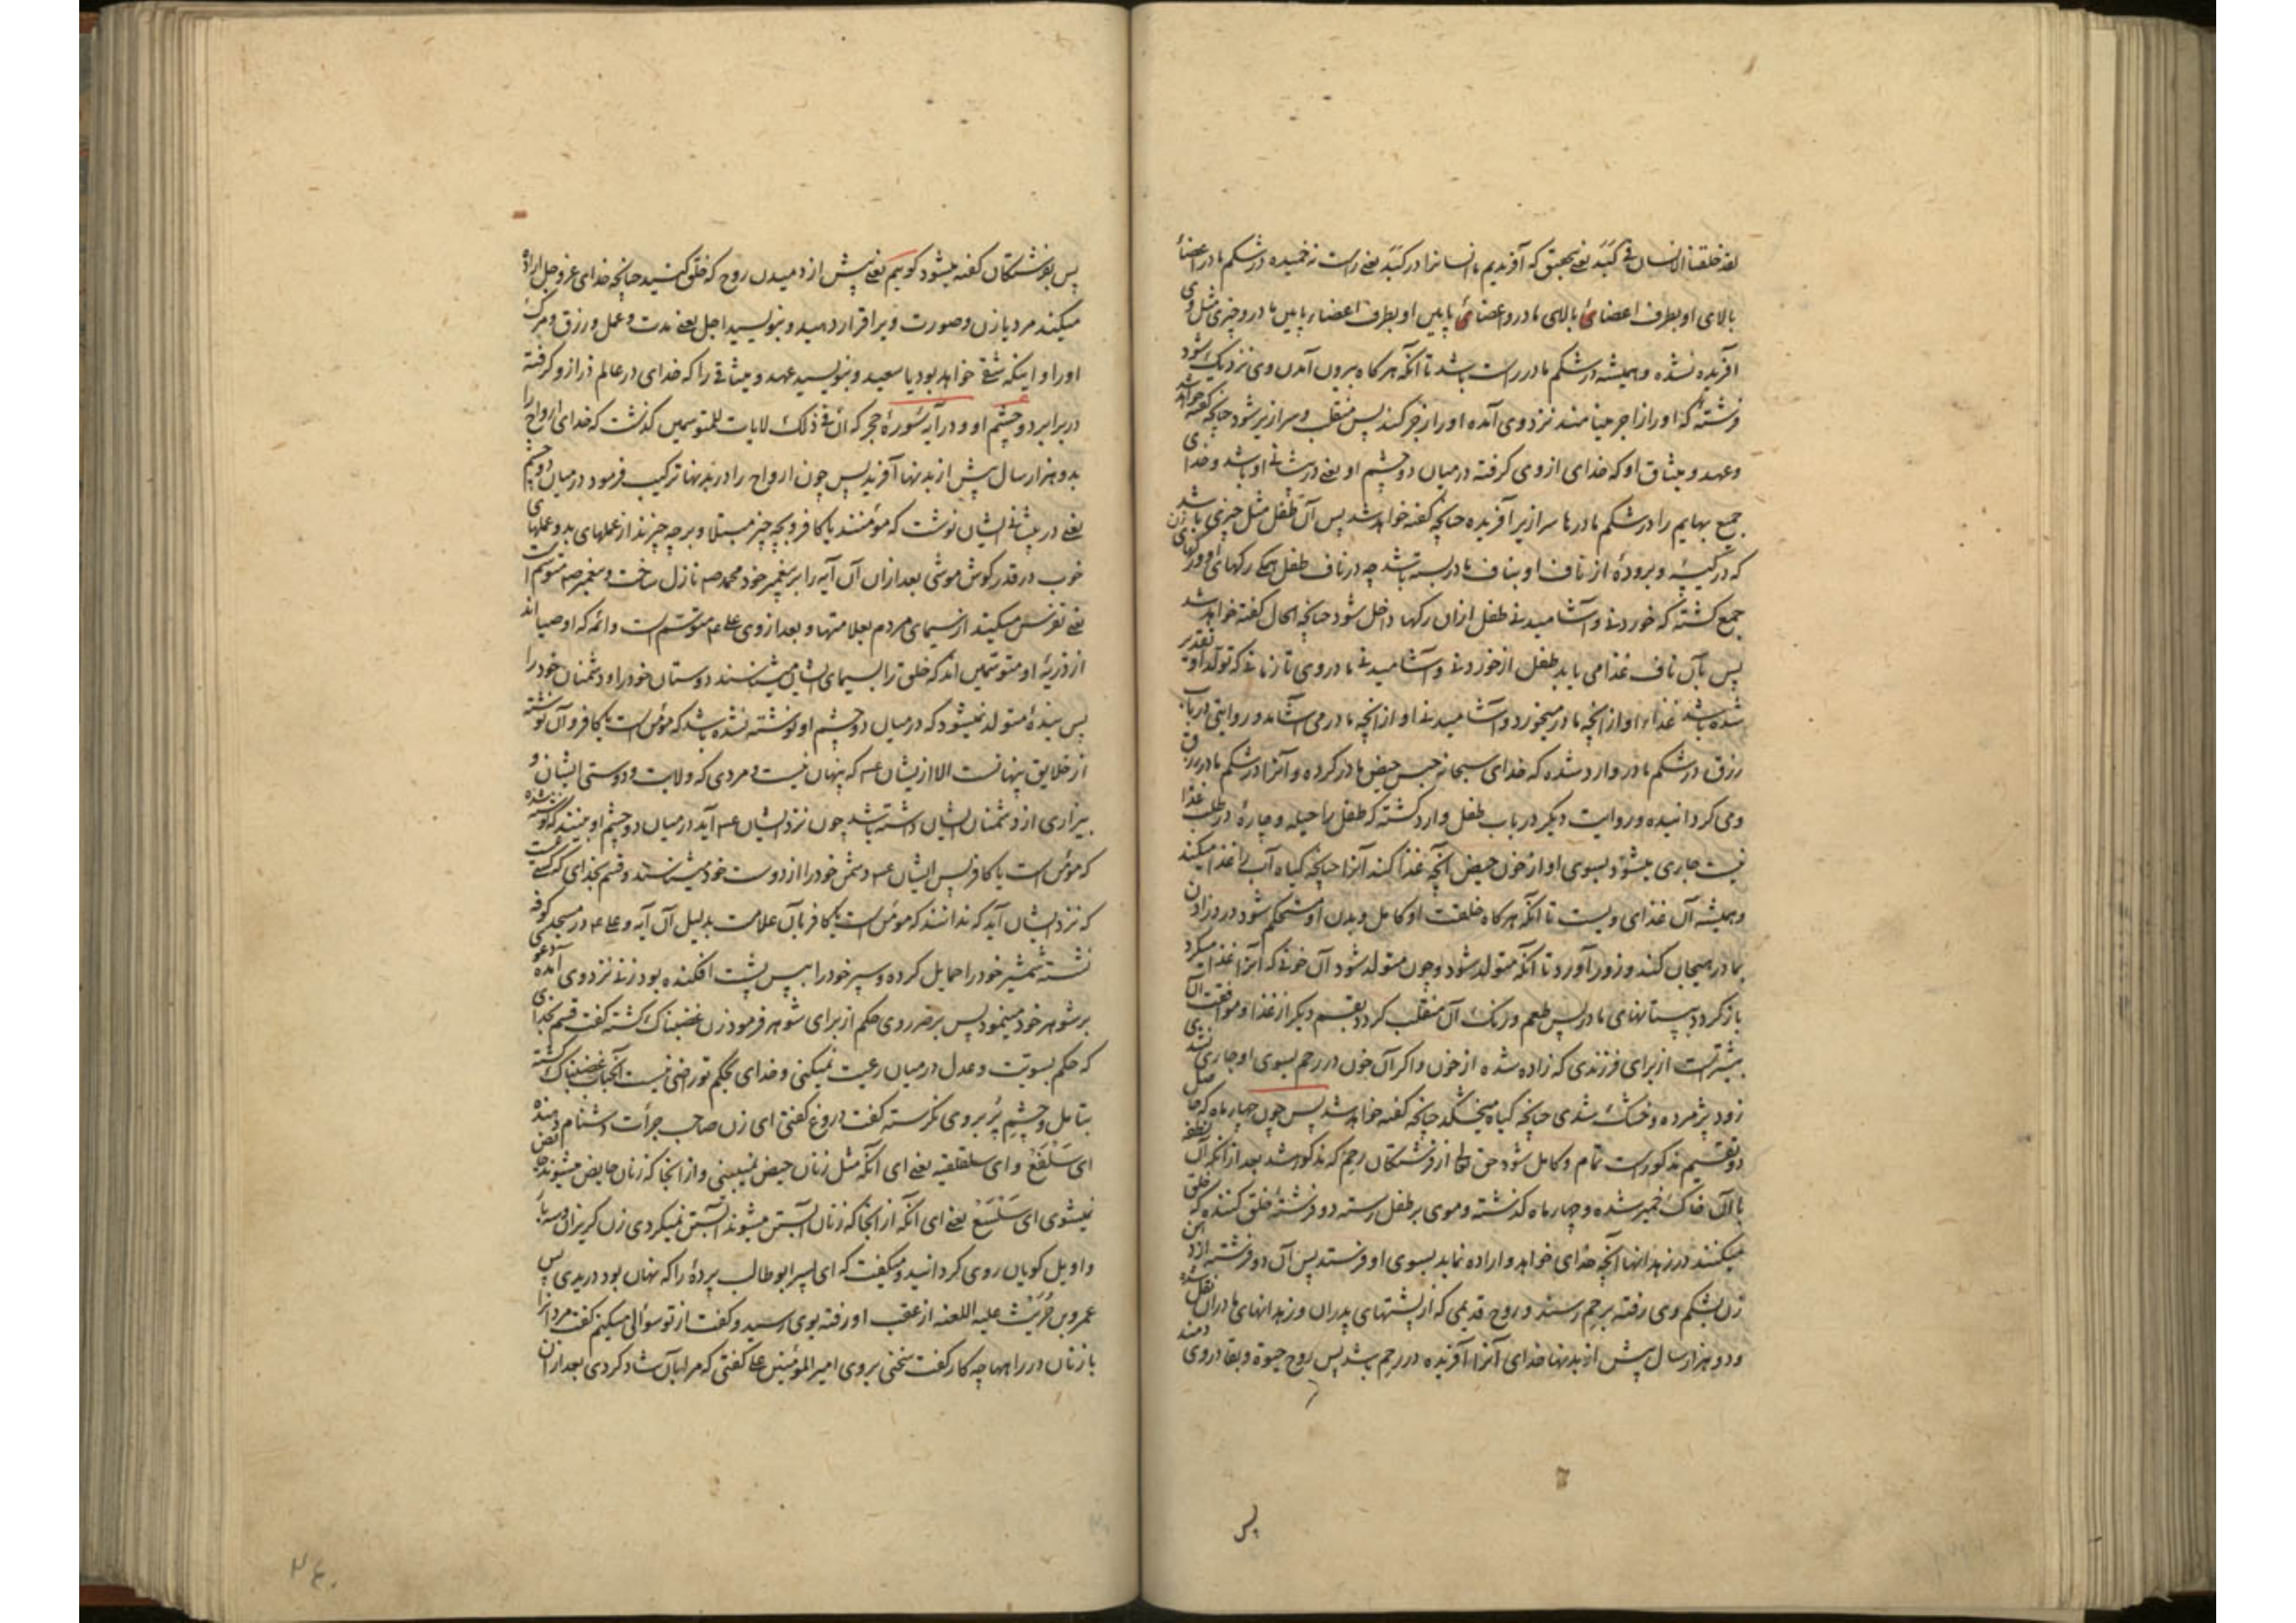 لقد خلقنا الانسان فی کبد یعنی بتحقیق که آفریدیم ما انسانرا در کبد یعنی راست نه خمیده در شکم مادر اعضاء
بالای او بطرف اعضائ بالای مادر و اعضائ پایین او بطرف اعضاء پایین مادر و چیزی مثل وی
آفریده نشده و همیشه در شکم مادر راست باشد تا آنکه هرگاه بیرون آمدن وی نزدیک شود
فرشتهٔ که اورا زاجر مینامند نزد وی آمده اورا زجر کند پس منقلب و سرازیر شود چنانچه گفته خواهد شد
وعهد و میثاق او که خدای از وی گرفته در میان دو چشم او یعنی در پیشانی او باشد و خدای
جمیع بهایم را در شکم مادرها سرازیر آفریده چنانچه گفته خواهد شد پس آن طفل مثل چیزی باشد
که در کیسه و برودهٔ از ناف او بناف مادر بسته باشد چه در ناف طفل همکی رکهای او و رکهای زن
جمع کشته که خوردنی و آشامیدنی طفل ازان رکها داخل شود چنانچه الحال گفته خواهد شد
پس بآن ناف غذا می یابد طفل از خوردنی و آشامیدنی مادر وی تا زمانی که تولد او تقدیر
شده باشد غذاء او از آنچه مادر میخورد و آشامیدنی او از آنچه مادر می آشامد و روایتی در باب
رزق در شکم مادر وارد شده که خدای سبحانه حبس حیض مادر کرده و آنرا در شکم مادر رزق
وی کردانیده و روایت دیکر در باب طفل وارد کشته که طفل را حیله و چارهٔ در طلب غذا
نیست جاری میشود بسوی او از خون حیض آنچه غذا کند آنرا چنانچه کیاه آب را غذا میکند
وهمیشه آن غذای ویست تا آنکه هرکاه خلقت او کامل و بدن او مستحکم شود درد زادن
بمادر هیجان کند و زور آورد تا آنکه متولد شود و چون متولد شود آن خونی که آنرا غذا میکرد
باز کردد بپستانهای مادر پس طعم و رنک آن منقلب کردد بقسم دیکر از غذا و موافقت آن
بیشترست از برای فرزندی که زاده شده از خون و اکر آن خون در رحم بسوی او جاری شدی
زود پژمرده و خشک شدی چنانچه کیاه میخشکد چنانچه گفته خواهد شد پس چون چهار ماه که حاصل
دو تقسیم مذکورست تمام و کامل شود حق تعالی از فرشتکان رحم که مذکور شد بعد از آنکه آن نطفه
با آن خاک خمیر شده و چهار ماه کذشته و موی بر طفل رسته دو فرشتهٔ خلق کننده که خلق
میکنند در زهدانها آنچه خدای خواهد و اراده نماید بسوی او فرستد پس آن دو فرشته از دهن
زن بشکم وی رفته برحم رسند و روح قدیمی که از پشتهای پدران و زهدانهای مادران نقل شده
و دو هزار سال پیش از بدنها خدای آنرا آفریده در رحم باشد پس روح حیوة و بقا در وی دمند
پس
پس بفرشتکان گفته میشود کوییم یعنی پیش از دمیدن روح که خلق کنید چنانچه خدای عز و جل اراده
میکند مرد یا زن و صورت ویرا قرار دهید و بنویسید اجل یعنی مدت و عمل و رزق و مرک
اورا و اینکه شقی خواهد بود یا سعید و بنویسید عهد و میثاقی را که خدای در عالم ذر ازو کرفته
در برابر دو چشم او و در آیه سورهٔ حجر که ان فی ذلک لایات للمتوسمین کذشت که خدای ارواح را
بدو هزار سال پیش از بدنها آفرید پس چون ارواح را در بدنها ترکیب فرمود در میان دو چشم
یعنی در پیشانی ایشان نوشت که مؤمنند یا کافر و بچه چیز مبتلا و بر چه چیزند از عملهای بد و عملهای
خوب در قدر کوش موشی بعد از ان آن آیه را بر پیغمبر خود محمد صه نازل ساخت و پیغمبر صه متوسم است
یعنی تفرس میکند از سیمای مردم بعلامتها و بعد از وی علی ع متوسم است و ائمه که اوصیا اند
از ذریهٔ او متوسمین اند که خلق را بسیمای ایشان میشناسند دوستان خود را و دشمنان خود را
پس بندهٔ متولد نمیشود که در میان دو چشم او نوشته نشده باشد که مؤمن است یا کافر و آن نوشته
از خلایق پنهانست الا از ایشان ع که پنهان نیست و مردی که ولایت و دوستی ایشان و
بیزاری از دشمنان ایشان داشته باشد چون نزد ایشان ع آید در میان دو چشم او بینند که نوشته شده
که مؤمن است یا کافر پس ایشان ع دشمن خود را از دوست خود میشناسند و قسم بخدای که کسی نیست
که نزد ایشان آید که ندانند که مؤمن است یا کافر بآن علامت بدلیل آن آیه و علی ع در مسجد کوفه
نشسته شمشیر خود را حمایل کرده و سپر خود را بپس پشت افکنده بود زنی نزد وی آمده دعوی
بر شوهر خود مینمود پس بر ضرر وی حکم از برای شوهر فرمود زن غضبناک کشته گفت قسم بخدای
که حکم بسویت و عدل در میان رعیت نمیکنی و خدای بحکم تو راضی نیست آنجناب غضبناک کشته
بتامل و چشم پر بر وی نکرسته کفت دروغ کفتی ای زن صاحب جرأت دشنام دهنده
ای سلفع و ای سلقلقیه یعنی ای آنکه مثل زنان حیض نمیبینی و از آنجا که زنان حایض میشوند حایض
نمیشوی ای سلسع یعنی ای آنکه از آنجا که زنان آبستن میشوند آبستن نمیکردی زن کریزان و سه بار
واویل کویان روی کردانید و میکفت که ای پسر ابوطالب پردهٔ را که نهان بود دریدی پس
عمرو بن حریث علیه اللعنه از عقب او رفته بوی رسید و کفت از تو سوالی میکنم کفت مرد انرا
با زنان در راهها چه کار کفت سخنی بروی امیر المؤمنین علی کفتی که مرا بآن شاد کردی بعد ازان